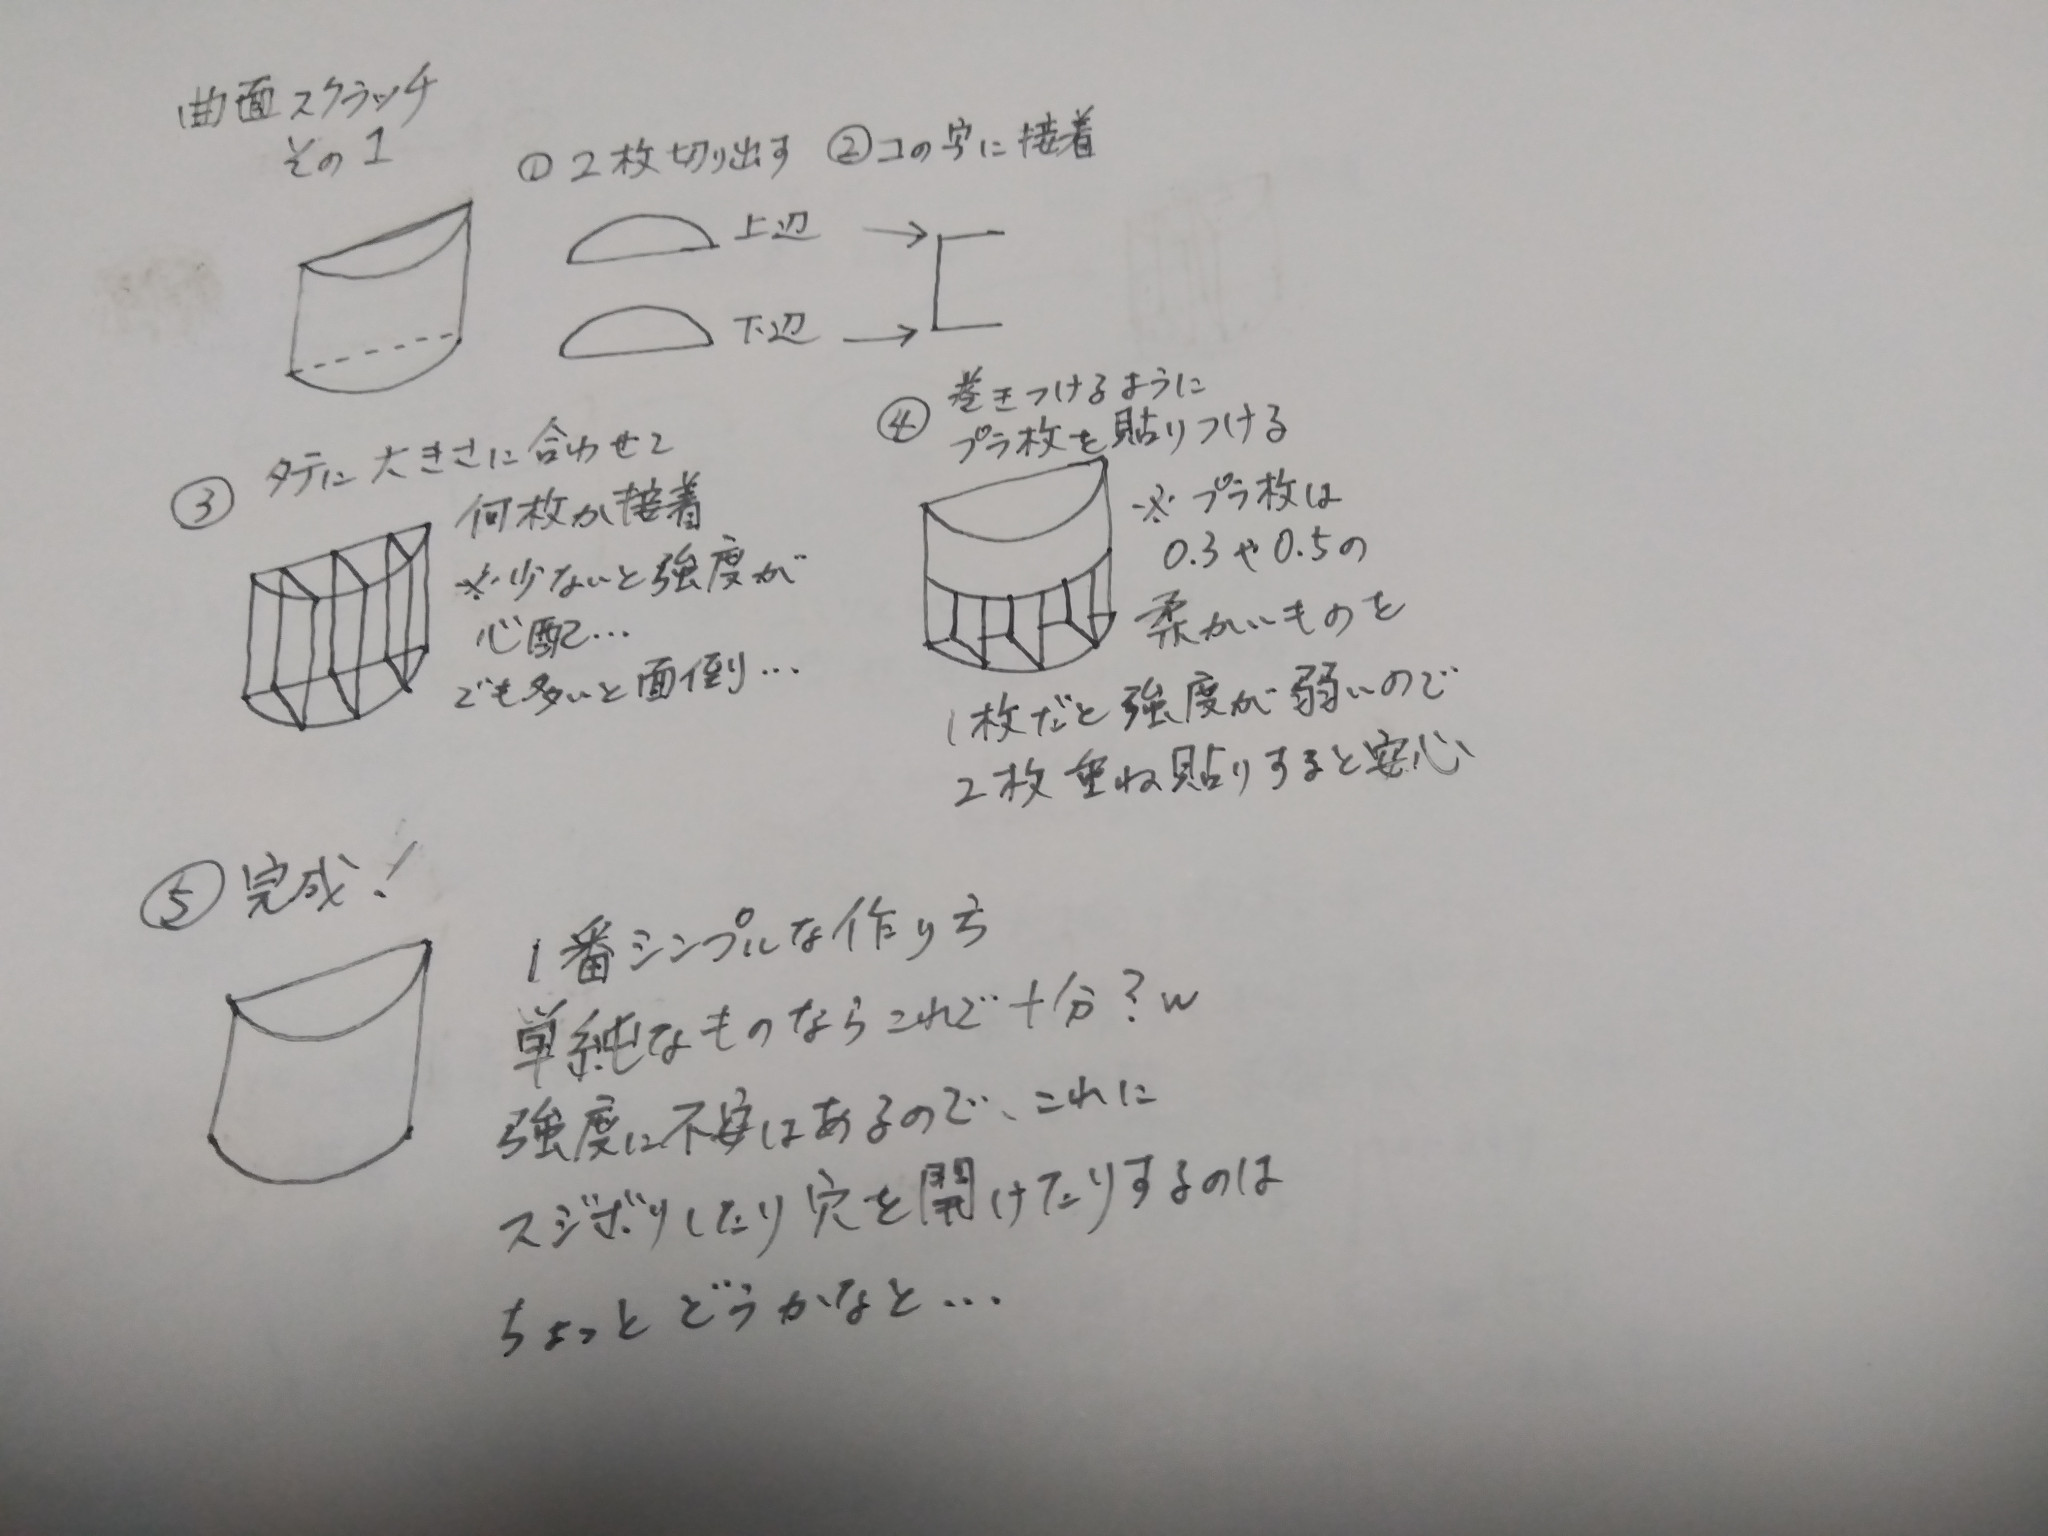 曲面スクラッチ
その1
① 2枚切り出す
上辺
下辺
② コの字に接着
③ タテに大きさに合わせて
何枚か接着
※少ないと強度が
心配…
でも多いと面倒…
④ 巻きつけるように
プラ板を貼りつける
※プラ板は
0.3や0.5の
柔かいものを
1枚だと強度が弱いので
2枚重ね貼りすると安心
⑤ 完成!
1番シンプルな作り方
単純なものならこれで十分?w
強度に不安はあるので、これに
スジボリしたり穴を開けたりするのは
ちょっとどうかなと…